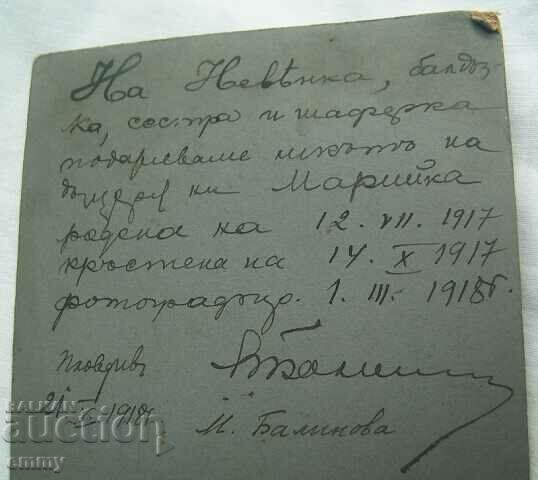 На Невѣнка, балдъз-
ка, сестра и шаферка
подаряваме ликътъ на
дъщеря ни Марийка
родена на 12. VII. 1917
кръстена на 14. X 1917
фотографир. 1. III. 1918г.
Пловдивъ
21 1918г
М. Балинова
BALKAN
auction
emmy